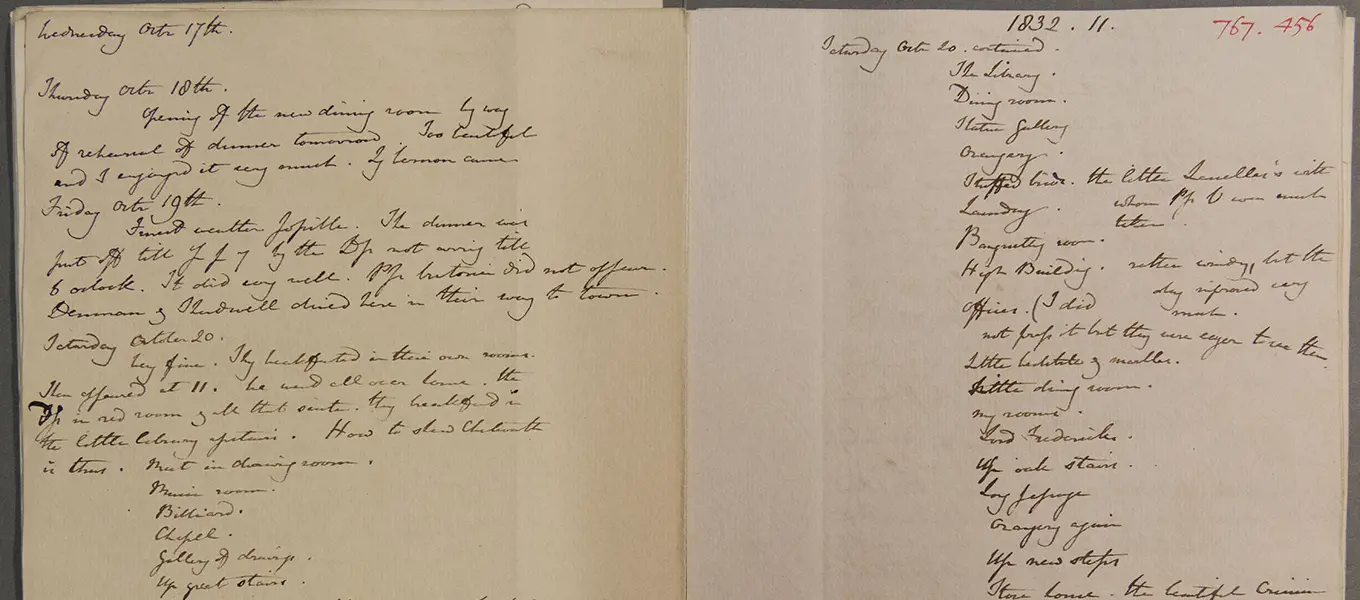 Wednesday Octr 17th.
Thursday Octr 18th.
Opening of the new dining room by way
of rehearsal of dinner tomorrow. Too beautiful
and I enjoyed it very much. came
Friday Octr 19th.
Finest weather possible. The dinner was
put off till ½ p 7 by the Dss not arrivg till
6 oclock. It did very well. Pss Victoria did not appear.
Denman & dined here in their way to town.
Saturday October 20.
Very fine. They breakfasted in their own rooms.
Then appeared at 11. We went all over house. The
Dss in red room & all that suite. They breakfasted in
the little library upstairs. How to shew Chatsworth
is thus. Meet in drawing room.
Music room.
Billiard.
Chapel.
Gallery of drawings.
Up great stairs.
1832. 11.
767. 456
Saturday Octr 20. continued.
The Library.
Dining room.
Statue Gallery
Orangery.
Stuffed birds. the little with
Laundry. whom Pss V was much
taken.
Banquetting room.
High Building. rather windy, but the
Offices. (I did day improved very
much.
not press it but they were eager to see them
Little & marbles.
Little dining room.
my rooms.
Lord Fredericks.
Up oak stairs.
Long passage
Orangery again
Up new steps
house. the beautiful